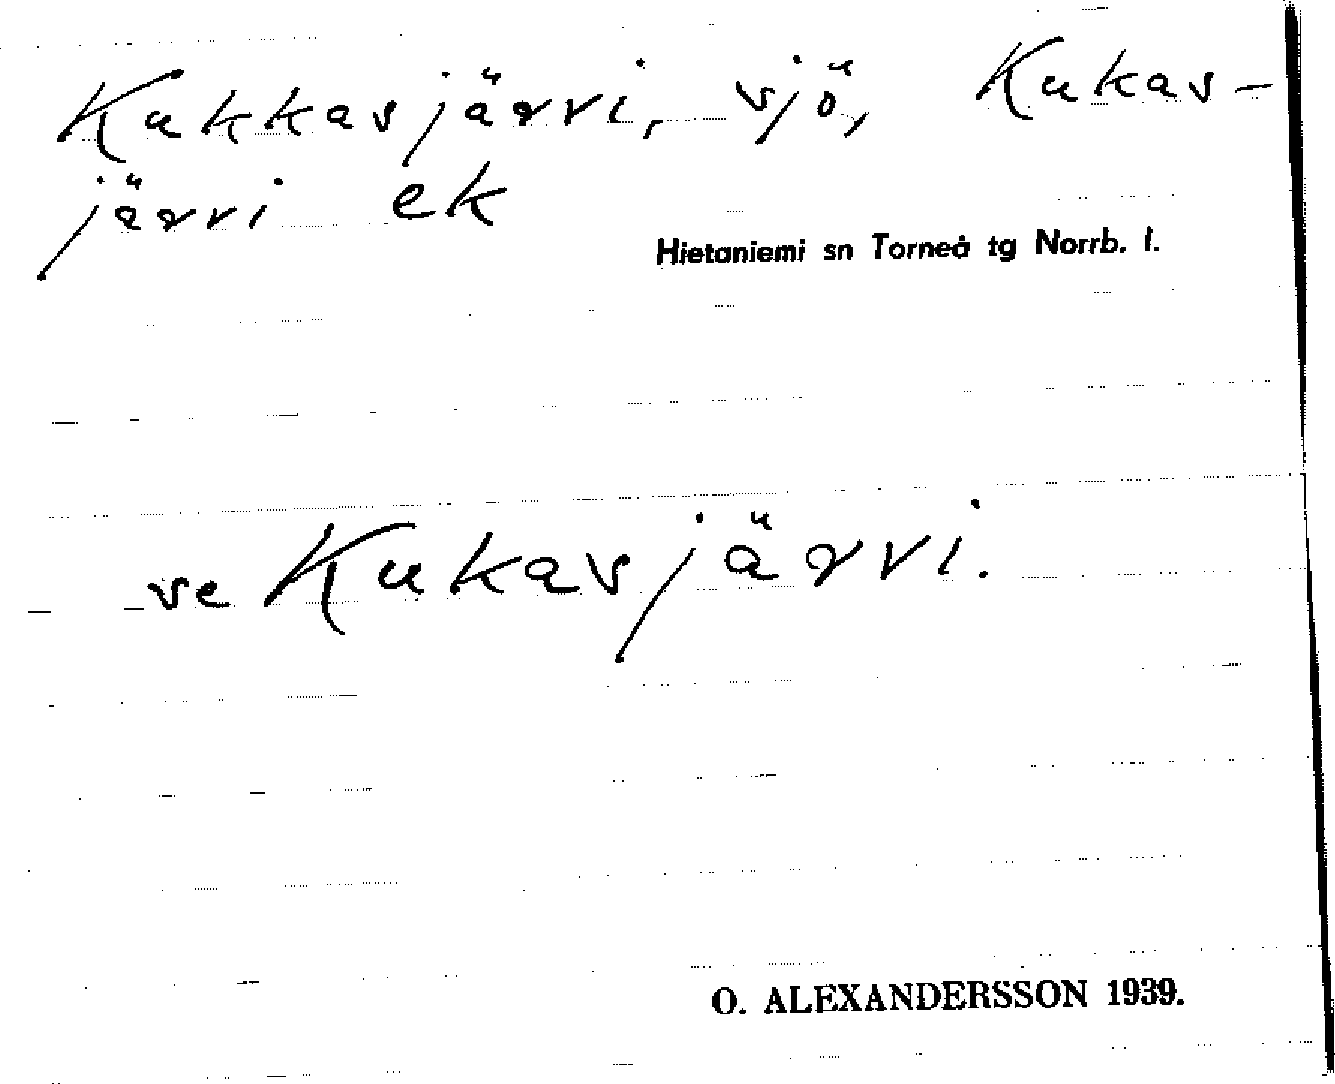 Kukkasjärvi, sjö, Kukas-
järvi ek
Hietaniemi sn Torneå tg Norrb. l.
se Kukasjärvi.
O. ALEXANDERSSON 1939.